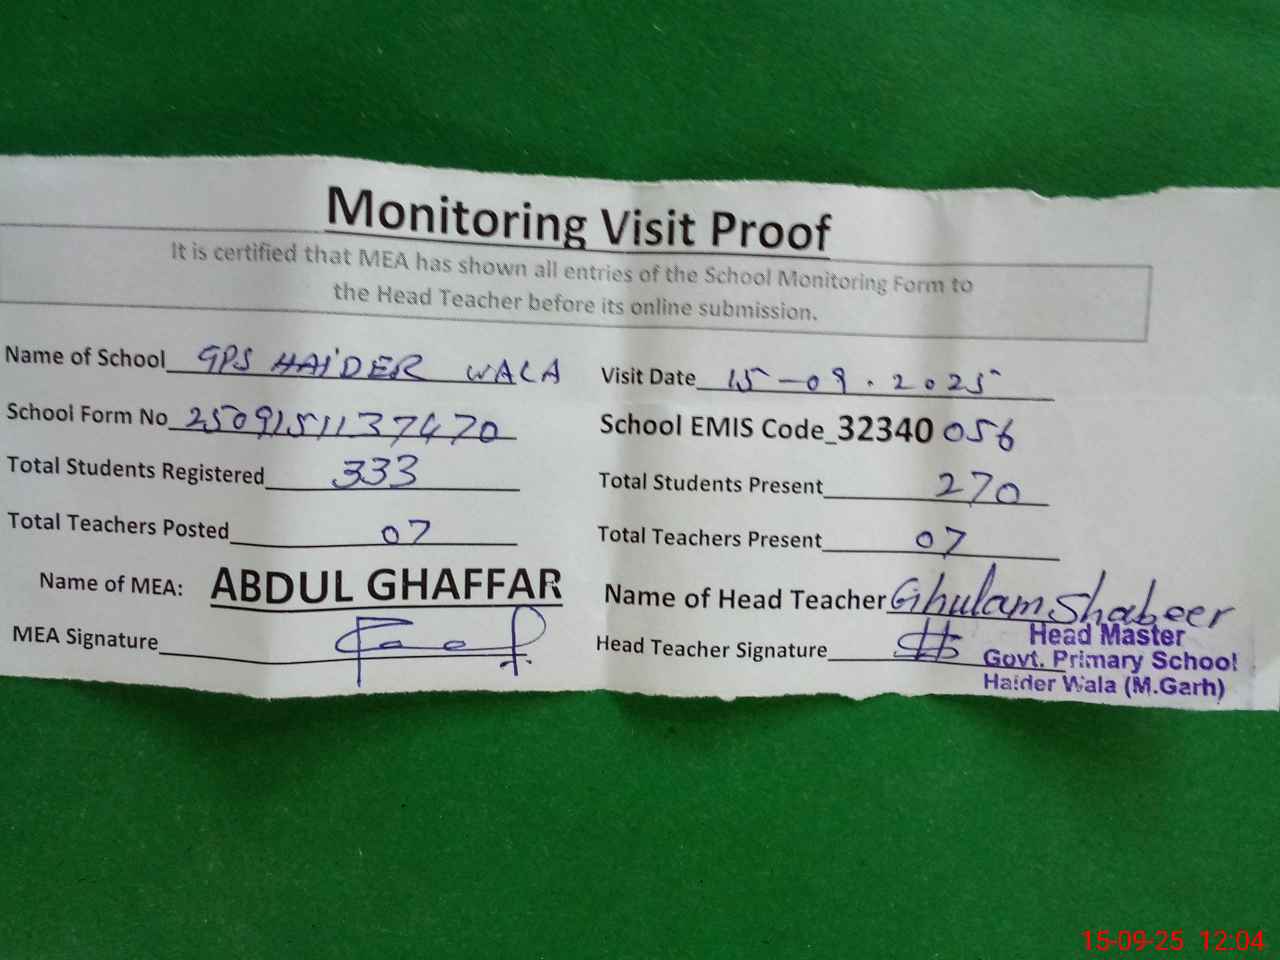 Monitoring Visit Proof
It is certified that MEA has shown all entries of the School Monitoring Form to
the Head Teacher before its online submission.
Name of School GPS HAIDER WALA
Visit Date 15-09.2025
School Form No 2509151137470
School EMIS Code_32340 056
Total Students Registered 333
Total Students Present 270
Total Teachers Posted 07
Total Teachers Present 07
Name of MEA: ABDUL GHAFFAR
Name of Head Teacher Ghulam Shabeer
MEA Signature
Head Teacher Signature
Head Master
Govt. Primary School
Haider Wala (M.Garh)
15-09-25 12:04